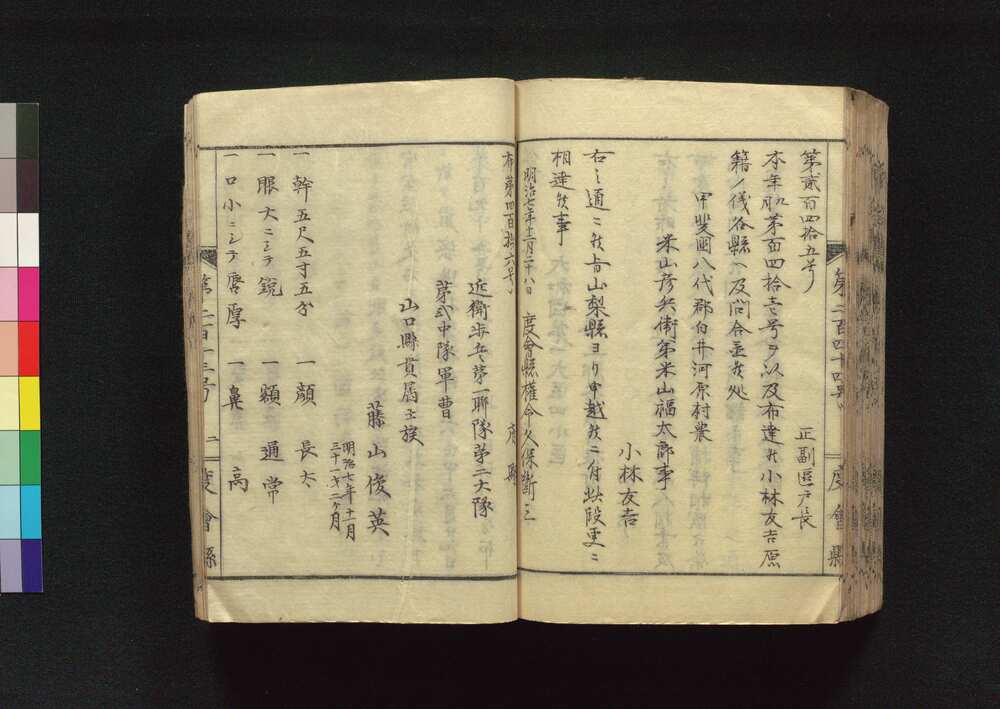 第貳百四拾五号
正副區戸長
本年甲第百四拾壱号ヲ以及布達候小林友吉原
籍ノ儀各縣ヘ及問合置候処
甲斐國八代郡白井河原村農
米山彦兵衛弟米山福太郎事
小林友吉
右之通ニ候旨山梨縣ヨリ申越候ニ付此段更ニ
相達候事
明治七年十一月二十八日　度會縣權令久保断三
第二百四十四号
度會縣
布第四百拾六号
府縣
近衛歩兵第一聯隊第二大隊
第弐中隊軍曹
山口縣貫属士族
藤山俊英
明治七年十一月
三十一才二ヶ月
一幹五尺五寸五分　一顔　長大
一眼大ニシテ鏡　一額　通常
一口小ニシテ唇厚　一鼻　高
二
度會縣